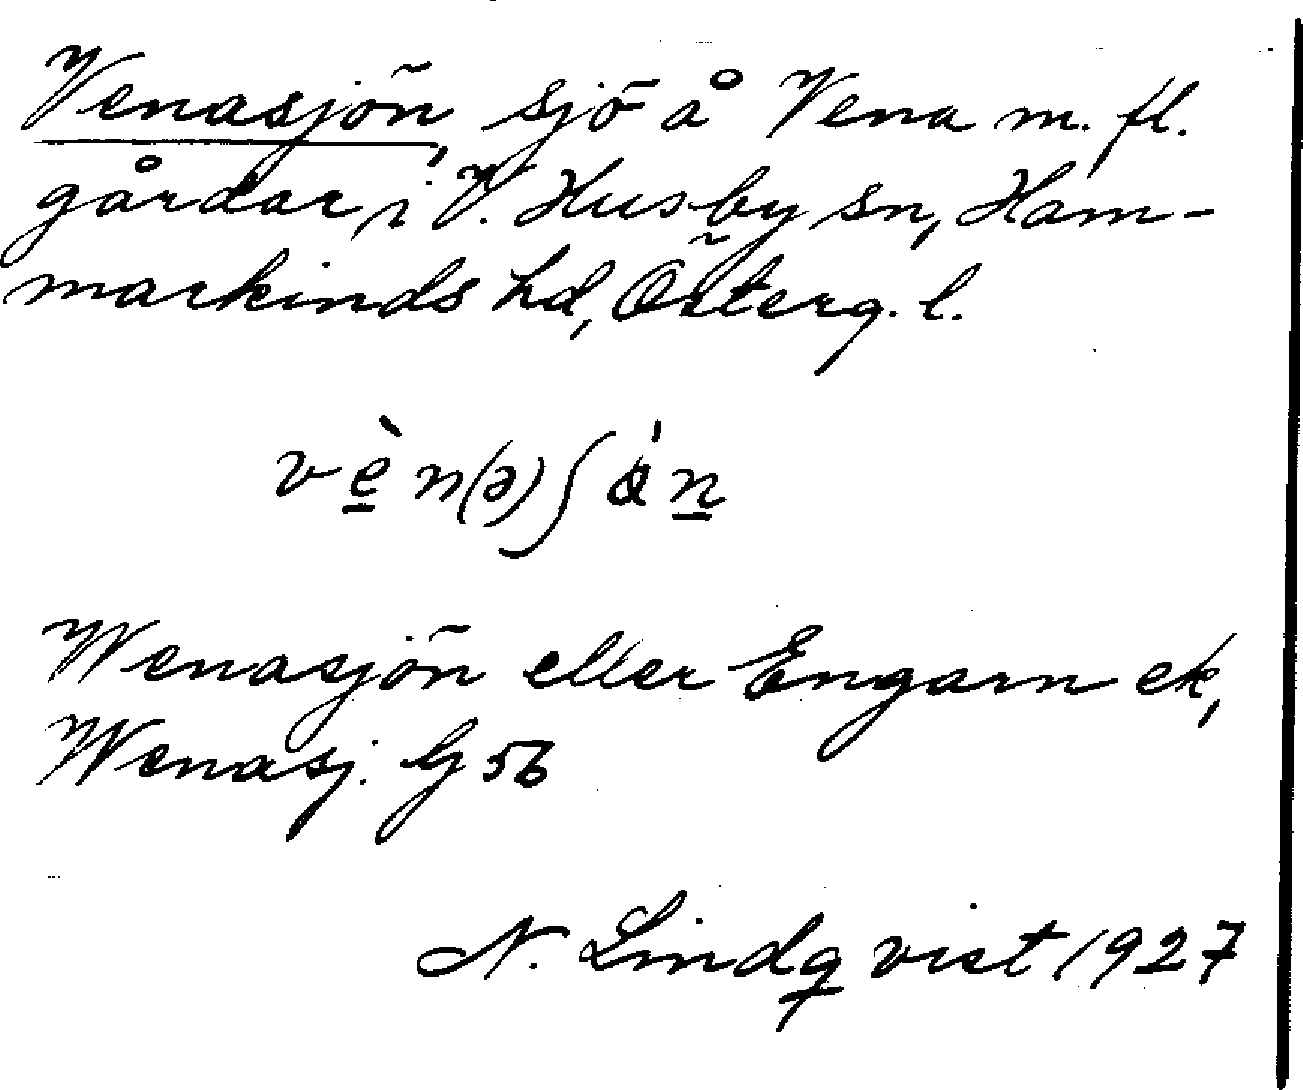 Venasjön, sjö å Vena m. fl.
gårdar, i V. Husby sn, Ham-
markinds hd, Österg. l.
vè̱n(ə)ʃ ǿṉ
Wenasjön eller Engarn ek,
Wenasj. G 56
N. Lindqvist 1927